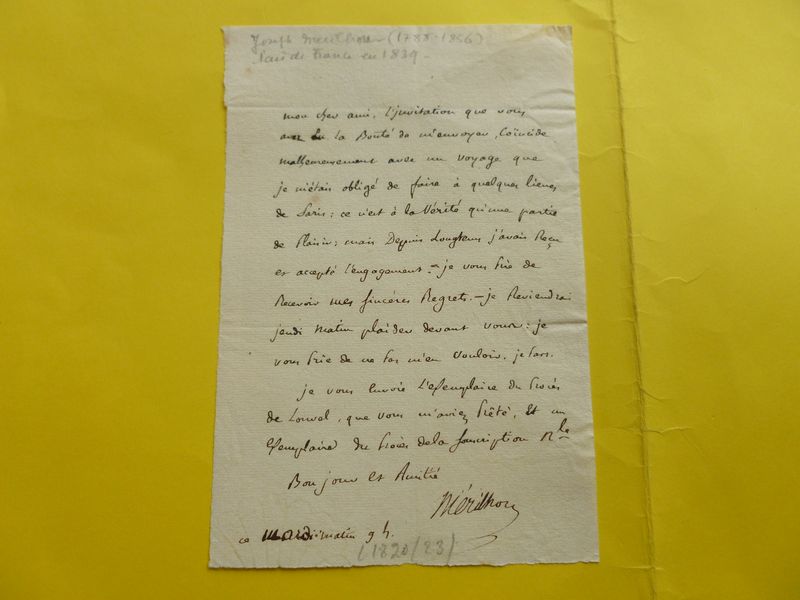 Joseph Merilhou (1788-1856)
Pair de France en 1839
mon cher ami, L'invitation que vous
avez Eu la Bonté de m'envoyer, Coïncide
malheureusement avec un voyage que
je m'étais obligé de faire à quelques lieues
de Paris; ce n'est à la Vérité qu'une partie
de Plaisir; mais Depuis Longtems j'avais Reçu
et accepté l'engagement. - je vous Prie de
Recevoir mes sincères Regrets. - je Reviendrai
jeudi matin plaider devant vous: je
vous Prie de ne pas m'en vouloir. je pars.
je vous Envoie L'exemplaire du Procès
de Louvel, que vous m'aviez Prêté, Et un
Exemplaire du Procès de la Souscription Nle
Bon jour et Amitié
Mérilhou
ce mardi matin 9 h.
(1820/23)